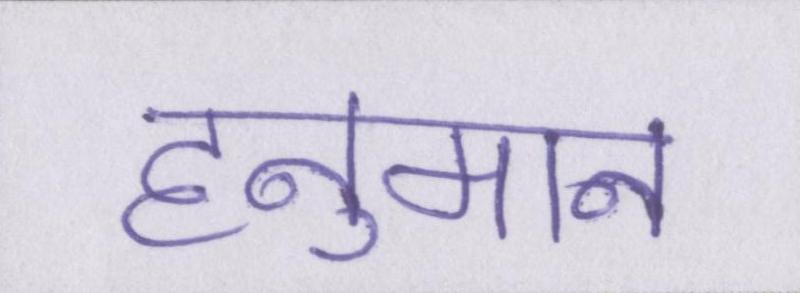 हनुमान